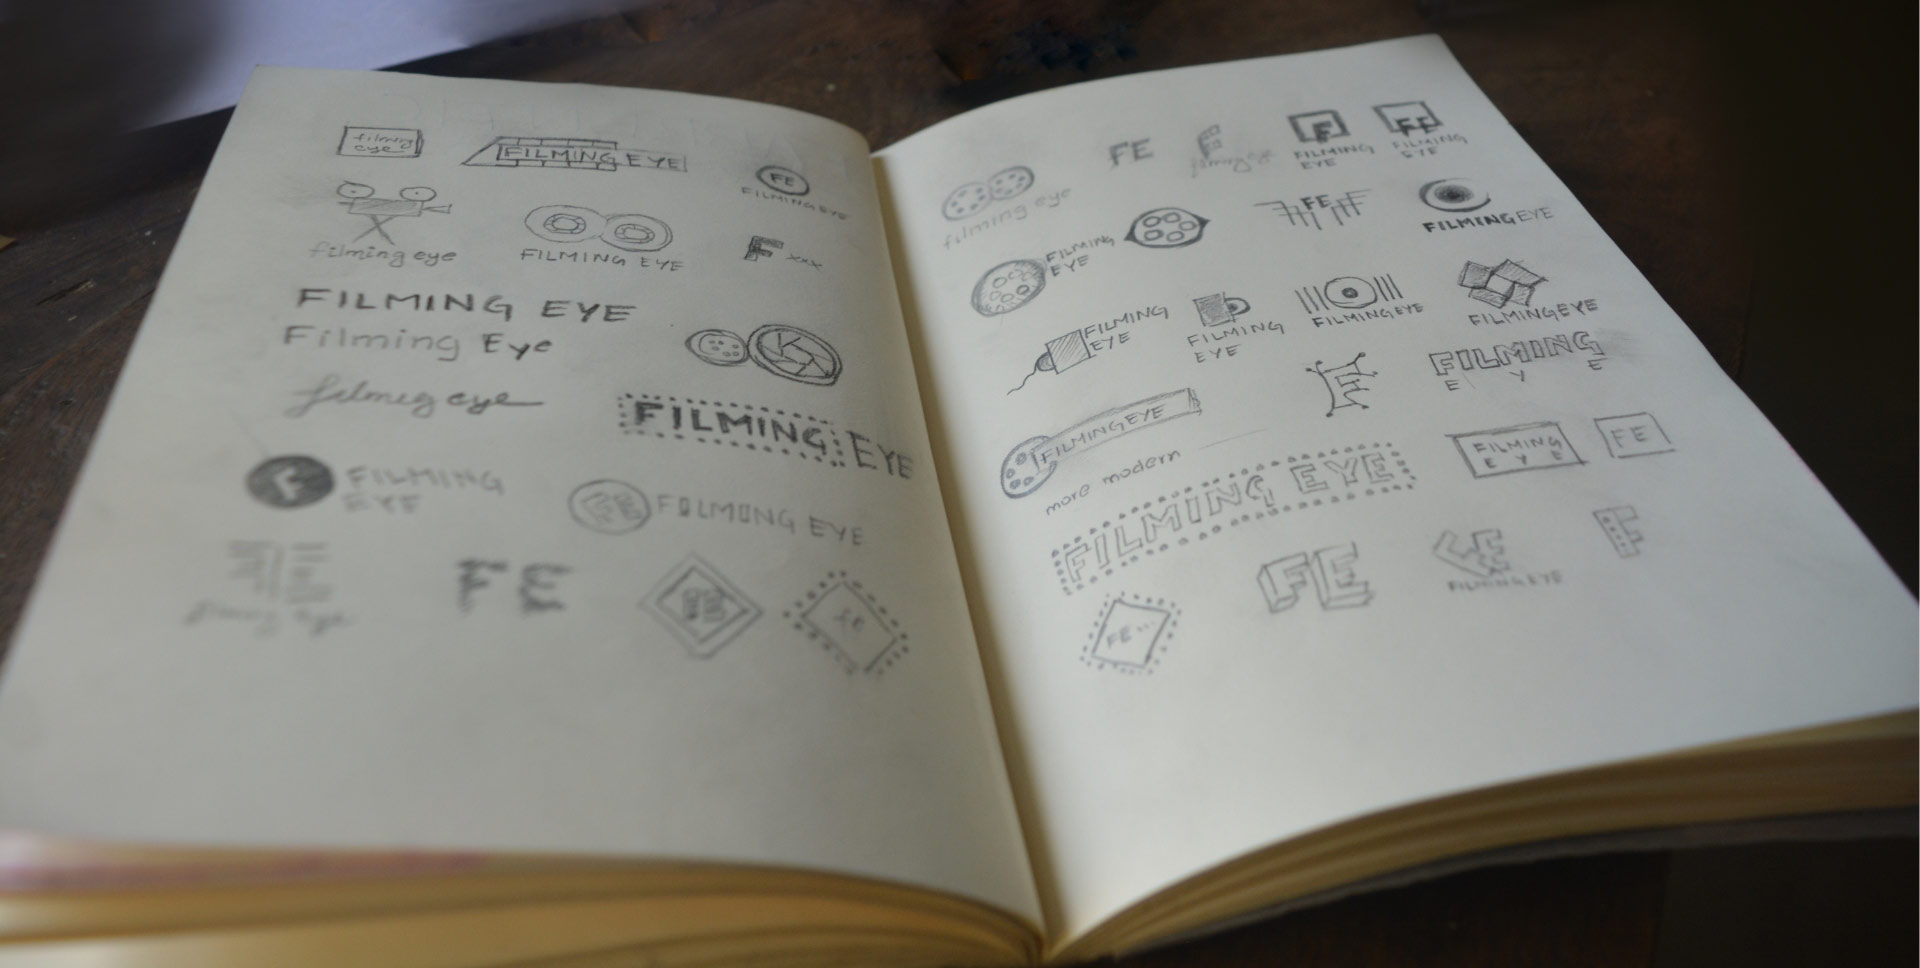 filming
eye
FILMING EYE
FE
FILMING EYE
filming eye
FILMING EYE
F xxx
FILMING EYE
Filming Eye
filmig eye
FILMING EYE
F FILMING
EYE
FE FILMING EYE
FE
FE
fe
filming eye
FE
F
filming eye
F
FILMING
EYE
FE
FILMING
EYE
FILMING
EYE
FE
FILMING EYE
FILMING
EYE
FILMING
EYE
FILMING EYE
FILMING EYE
FE
FILMING
E Y E
FILMING EYE
more modern
FILMING EYE
FILMING
E Y E
FE
FE
FE
FE
FILMING EYE
F